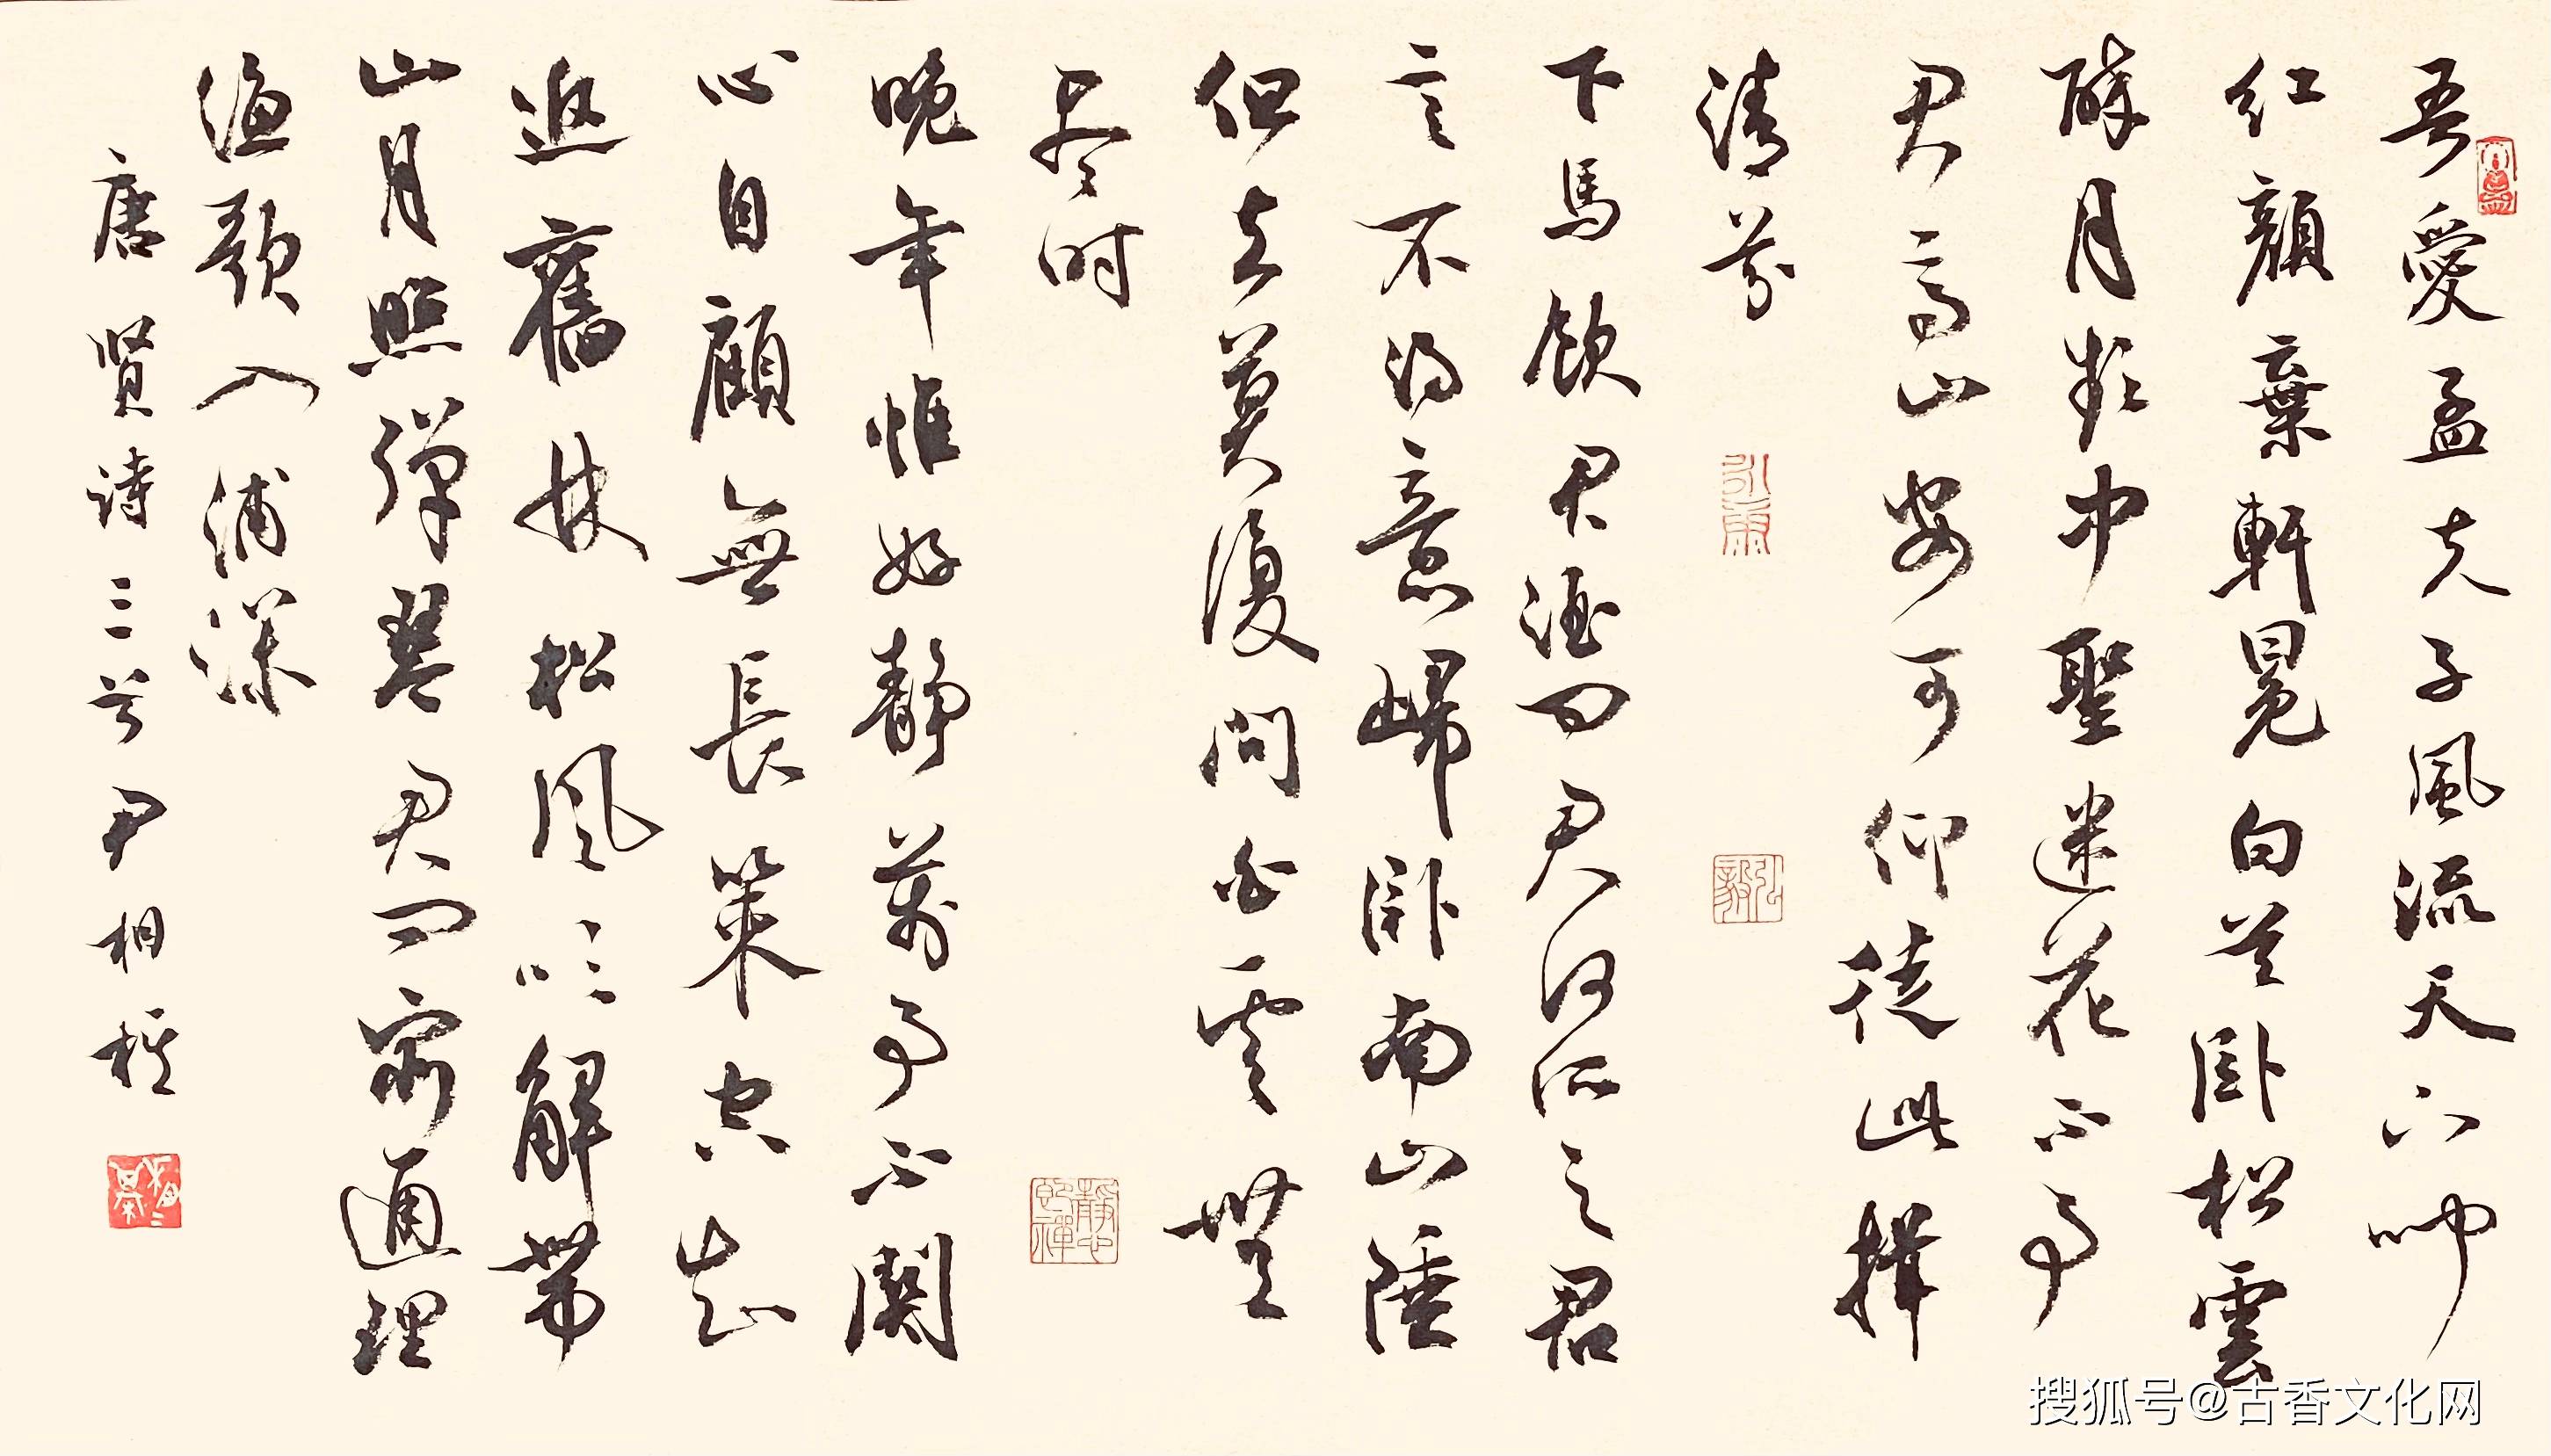 吾愛孟夫子風流天下聞
红顏棄軒冕白首卧松雲
醉月頻中聖迷花不事
君高山安可仰徒此揖
清芬
下馬飲君酒问君何所之君
言不得意歸卧南山陲
但去莫復問白雲無
尽时
晚年惟好静萬事不關
心自顧無長策空知
返舊林松風吹解帶
山月照彈琴君问窮通理
漁歌入浦深
唐贤诗三首尹相
弘毅
搜狐号@古香文化网